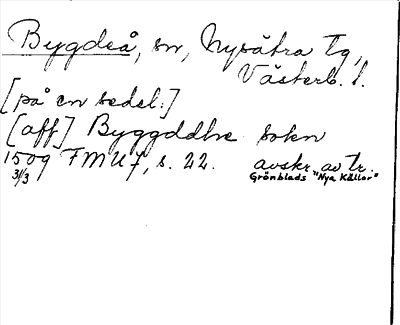 Bygdeå, sn, Nysätra tg,
Västerb. l.
[på en sedel:]
[aff] Byggddhe sokn
1509 FMU 7, s. 22. avskr. av Tr.
31/3 Grönblads "Nya Källor"